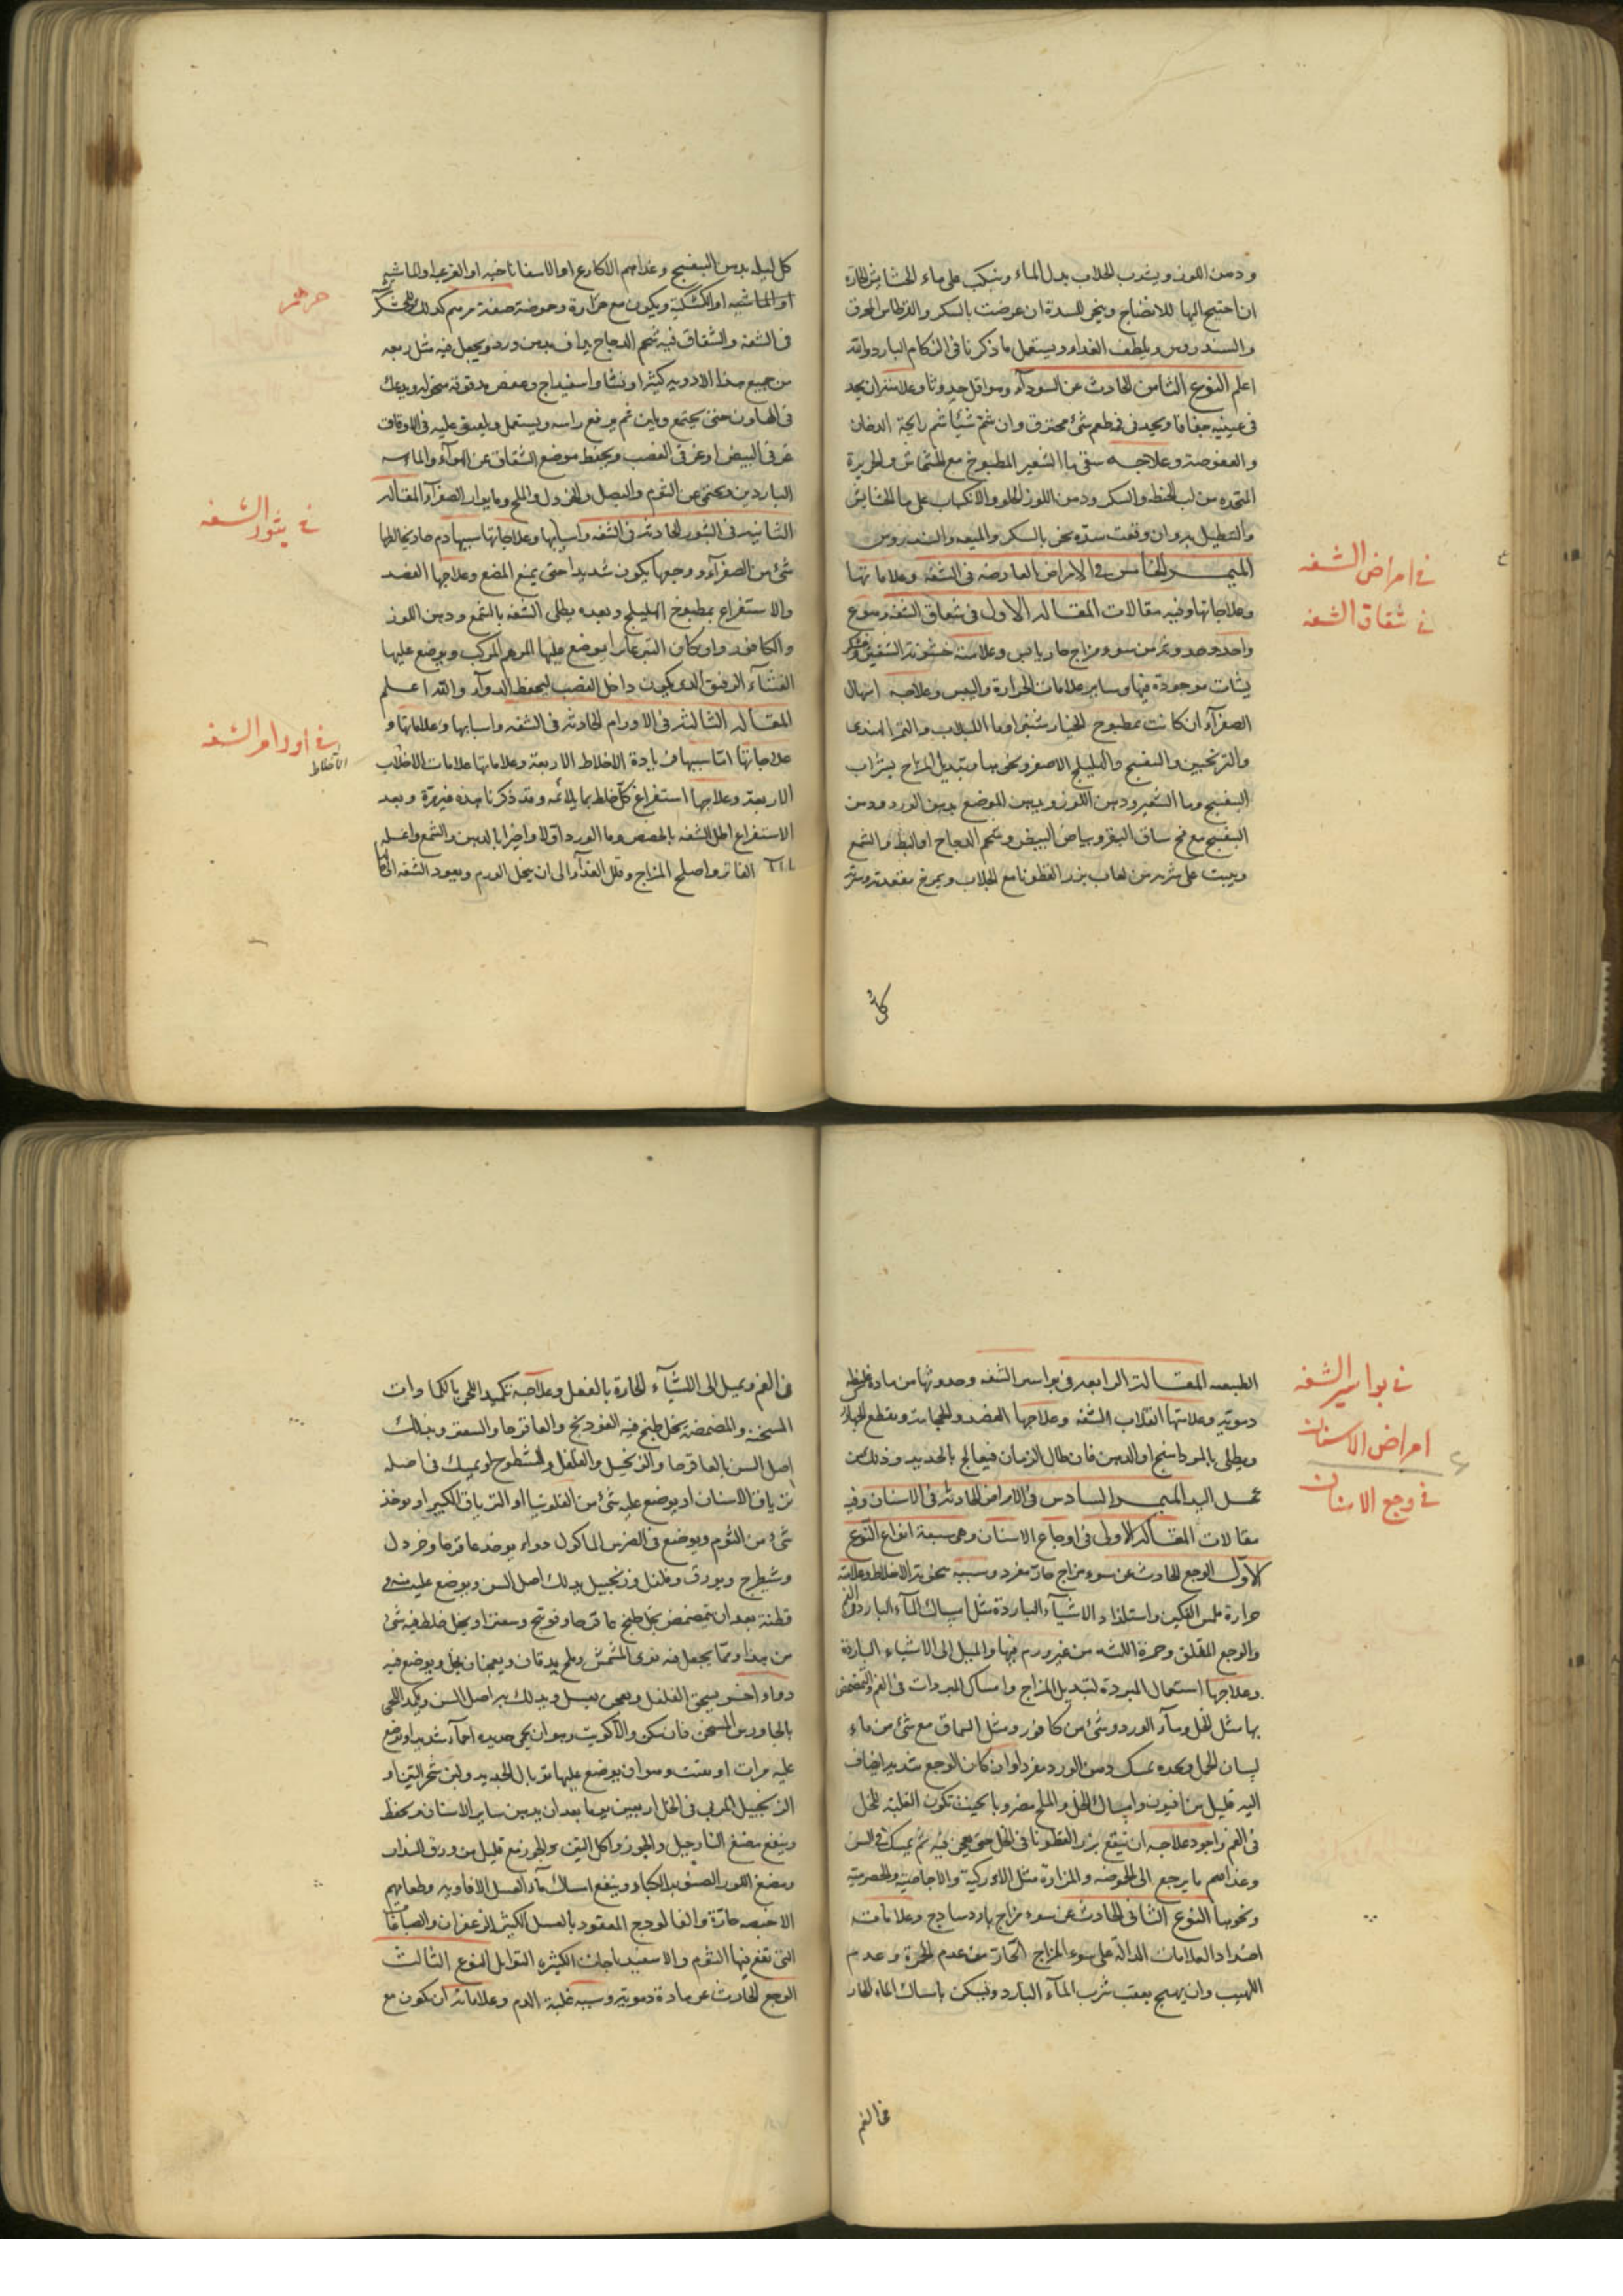 ودهن اللوز ويشرب الجلاب بدل الماء وينكب على ماء الحشايش الحارة
ان احتيج اليها للانضاج وينجر للسدة ان عرضت بالسكر والقرطاس المحرق
والسندروس ويلطف الغذاء ويستعمل ما ذكرنا في الزكام البارد والله
اعلم النوع الثامن الحادث عن السوداء وهو اقل حدوثا وعلامته ان يجد
في عينيه جفافا ويجد في فمه طعم شئ محترق وان شم شيئا شم رايحة الدخان
والعفوصة وعلاجه سقى ماء الشعير المطبوخ مع الخشخاش والحريرة
المتخذة من لب الحنطة والسكر ودهن اللوز الحلو والانكباب على ماء الحشايش
والتنطيل به وان وقعت سدة بخر بالسكر والميعه والسندروس
الميمر الخامس في الامراض العارضه في الشفه وعلاماتها
وعلاجاتها وفيه مقالات المقاله الاولى في شقاق الشفه وهو نوع
واحد وحدوثه من سوء مزاج حار يابس وعلامته خشونة الشفتين
موجودة فيها وساير علامات الحرارة واليبس وعلاجه اسهال
الصفرآء ان كانت بمطبوخ الخيار شنبر او ماء اللبلاب والتمر الهندى
والترنجبين والبنفسج والهليلج الاصفر ونحوها وتبديل المزاج بشراب
البنفسج وماء الشعير ودهن اللوز ويدهن الموضع بدهن الورد ودهن
البنفسج مع مخ ساق البقر وبياض البيض وشحم الدجاج او البط والشمع
ويبيت على شربه من لعاب بزر القطونا مع الجلاب ويمرخ مقعدته وسرته
كل
في امراض الشفه
في شقاق الشفه
كل ليله بدهن البنفسج وغذاهم الاكارع او الاسفاناخيه او القرعيه او الماشيه
او الماشيه او الكشكية ويكون مع حرارة وحموضة صفة مرهم كذلك
في الشفه والشقاق فيه شحم الدجاج يذاف بدهن ورد ويجعل فيه مثل ربعه
من جميع هذه الادويه كثيرا ونشا واسفيداج وعفص مدقوقة منخوله ويدعك
في الهاون حتى يجتمع ويلين ثم يرفع راسه ويستعمل ويلصق عليه في الاوقات
غرقى البيض او غرقى القصب ويحفظ موضع الشقاق عن الهوآء والماء
الباردين ويحتمى عن الثوم والبصل والخردل والملح وما يولد الصفرآء المقاله
الثانيه في البثور الحادثه في الشفه واسبابها وعلاجاتها سببها دم حار يخالطها
شئ من الصفرآء ووجعها يكون شديدا حتى يمنع المضغ وعلاجها الفصد
والاستفراغ بمطبوخ الهليلج وبعده يطلى الشفه بالشمع ودهن اللوز
والكافور وان كان يوضع عليها المرهم المركب ويوضع عليها
الغشآء الرقيق الذى يكون داخل القصب ليحفظ الدوآء والله اعلم
المقاله الثالثه في الاورام الحادثه في الشفه واسبابها وعلاماتها و
علاجاتها اما سببها فزيادة الاخلاط الاربعة وعلاماتها علامات الاخلاط
الاربعة وعلاجها استفراغ كل خلط بما يلائمه وقد ذكرنا هذه غير مرة وبعد
الاستفراغ اطل الشفه بالحضض وماء الورد اولا واخرا بالدهن والشمع واغسله
بالماء الفاتر واصلح المزاج وقلل الغذآء الى ان ينحل الورم ويعود الشفه الى
في بثور الشفه
في اورام الشفه
الاخلاط
الطبيعه المقالة الرابعه في بواسير الشفه وحدوثها من مادة غليظة
دموية وعلامتها انقلاب الشفه وعلاجها الفصد والحجامة وقطع
ويطلى بالمرداسنج او الدهن فان طال الزمان فيعالج بالحديد وذلك من
عمل اليد الميمر السادس في الامراض الحادثه في الاسنان وفيه
مقالات المقاله الاولى في اوجاع الاسنان وهي سبعة انواع النوع
الاول الوجع الحادث عن سوء مزاج حار مفرد وسببه سخونة الاخلاط وعلامته
حرارة ملمس الفكين واستلذاذ الاشيآء الباردة مثل امساك المآء البارد في الفم
والوجع المقلق وحمرة اللثه من غير ورم فيها والميل الى الاشياء الباردة
وعلاجها استعمال المبردة لتبديل المزاج وامساك المبردات في الفم والتمضمض
بها مثل الخل ومآء الورد وشئ من كافور ومثل السماق مع شئ من ماء
لسان الحمل وحده يمسك دهن الورد مفردا وان كان الوجع شديدا يضاف
اليه قليل من افيون وامساك الخل والملح مضروبا بحيث تكون الغلبة للخل
في الفم واجود علاجه ان ينقع بزر القطونا في الخل حتى يلين فيه ثم يمسك في السن
وغذاهم ما يرجع الى الحموضه والمرارة مثل اللاوركية والاجاصيه والحصرمية
ونحوها النوع الثاني الحادث عن سوء مزاج بارد ساذج وعلاماته
اضداد العلامات الدالة على سوء المزاج الحار من عدم الحمرة وعدم
اللهيب وان يهيج بعقب شرب المآء البارد ويسكن بامساك الماء الحار
في الفم
في بواسير الشفه
امراض الاسنان
في وجع الاسنان
في الفم ويميل الى الاشيآء الحارة بالفعل وعلاجه تكميد اللحى بالكمادات
المسخنة والمضمضة بخل طبخ فيه الفودنج والعاقرقرحا والسعتر ويدلك
اصل السن بالعاقرقرحا والزنجبيل والفلفل والشيطرج او يمسك في اصله
ترياق الاسنان او يوضع عليه شئ من الفلونيا او الترياق الكبير او يوخذ
شئ من الثوم ويوضع في الضرس الماكول دواء يوخذ عاقرقرحا وخردل
وشيطرج وبورق وفلفل وزنجبيل يدلك اصل السن ويوضع عليه منه في
قطنة بعد ان يتمضمض بخل طبخ عاقرقرحا وفودنج وسعتر او بخل خلط فيه شئ
من هذا ومما يجعل فيه نوى المشمش وملح يدقان ويعجنان بخل ويوضع فيه
دواء اخر يسحق الفلفل ويعجن بعسل ويدلك به اصل السن ويكمد اللحى
بالجاورس المسخن فان سكن والا كويت وهو ان يحمى حديده احمآء شديدا ويوضع
عليه مرات او تفتت وهو ان يوضع عليها توبال الحديد ولبن شجر التين او
الزنجبيل المربى في الخل اربعين يوما بعد ان يدهن ساير الاسنان ويحفظ
وينفع مضغ النارجيل والجوز واكل التين والجوز مع قليل من ورق السذاب
ومضغ اللوز الصنوبر الكبار وينفع امساك مآء العسل الافاويه وطعامهم
الاخبصه حارة والفالوذج المعقود بالعسل الكثير الزعفران
التى تقع فيها الثوم والاسفيدباجات الكثيره التوابل النوع الثالث
الوجع الحادث عن مادة دموية وسببه غلبة الدم وعلاماته ان يكون مع